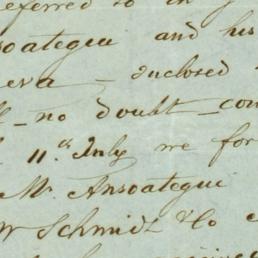 eferred to in y
soategui and his
eva – enclosed
ll – no doubt – con
11th July we for
Mr. Ansoategui
W Schmidt & Co